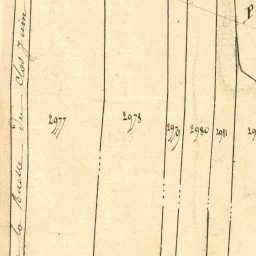 P
2977
2978
2979
2980
2981
29
du Clos Juin